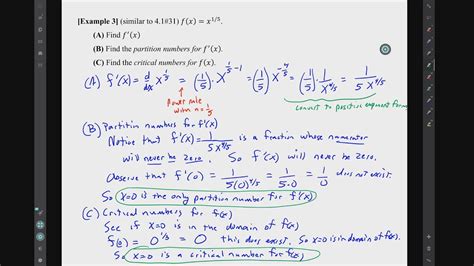 [Example 3] (similar to 4.1#31) f(x) = x^{1/5}.
(A) Find f'(x)
(B) Find the partition numbers for f'(x).
(C) Find the critical numbers for f(x).
(A) f'(x) = d/dx x^{1/5} = (1/5) x^{1/5 - 1} = (1/5) x^{-4/5} = (1/5) · 1/x^{4/5} = 1/(5 x^{4/5})
Power rule
with n = 1/5
convert to positive exponent form
(B) Partition numbers for f'(x)
Notice that f'(x) = 1/(5 x^{4/5}) is a fraction whose numerator
will never be zero. So f'(x) will never be zero.
Observe that f'(0) = 1/(5(0)^{4/5}) = 1/(5·0) = 1/0 does not exist.
So x=0 is the only partition number for f'(x)
(C) Critical numbers for f(x)
See if x=0 is in the domain of f(x)
f(0) = 0^{1/5} = 0 this does exist. So x=0 is in domain of f(x).
So x=0 is a critical number for f(x)